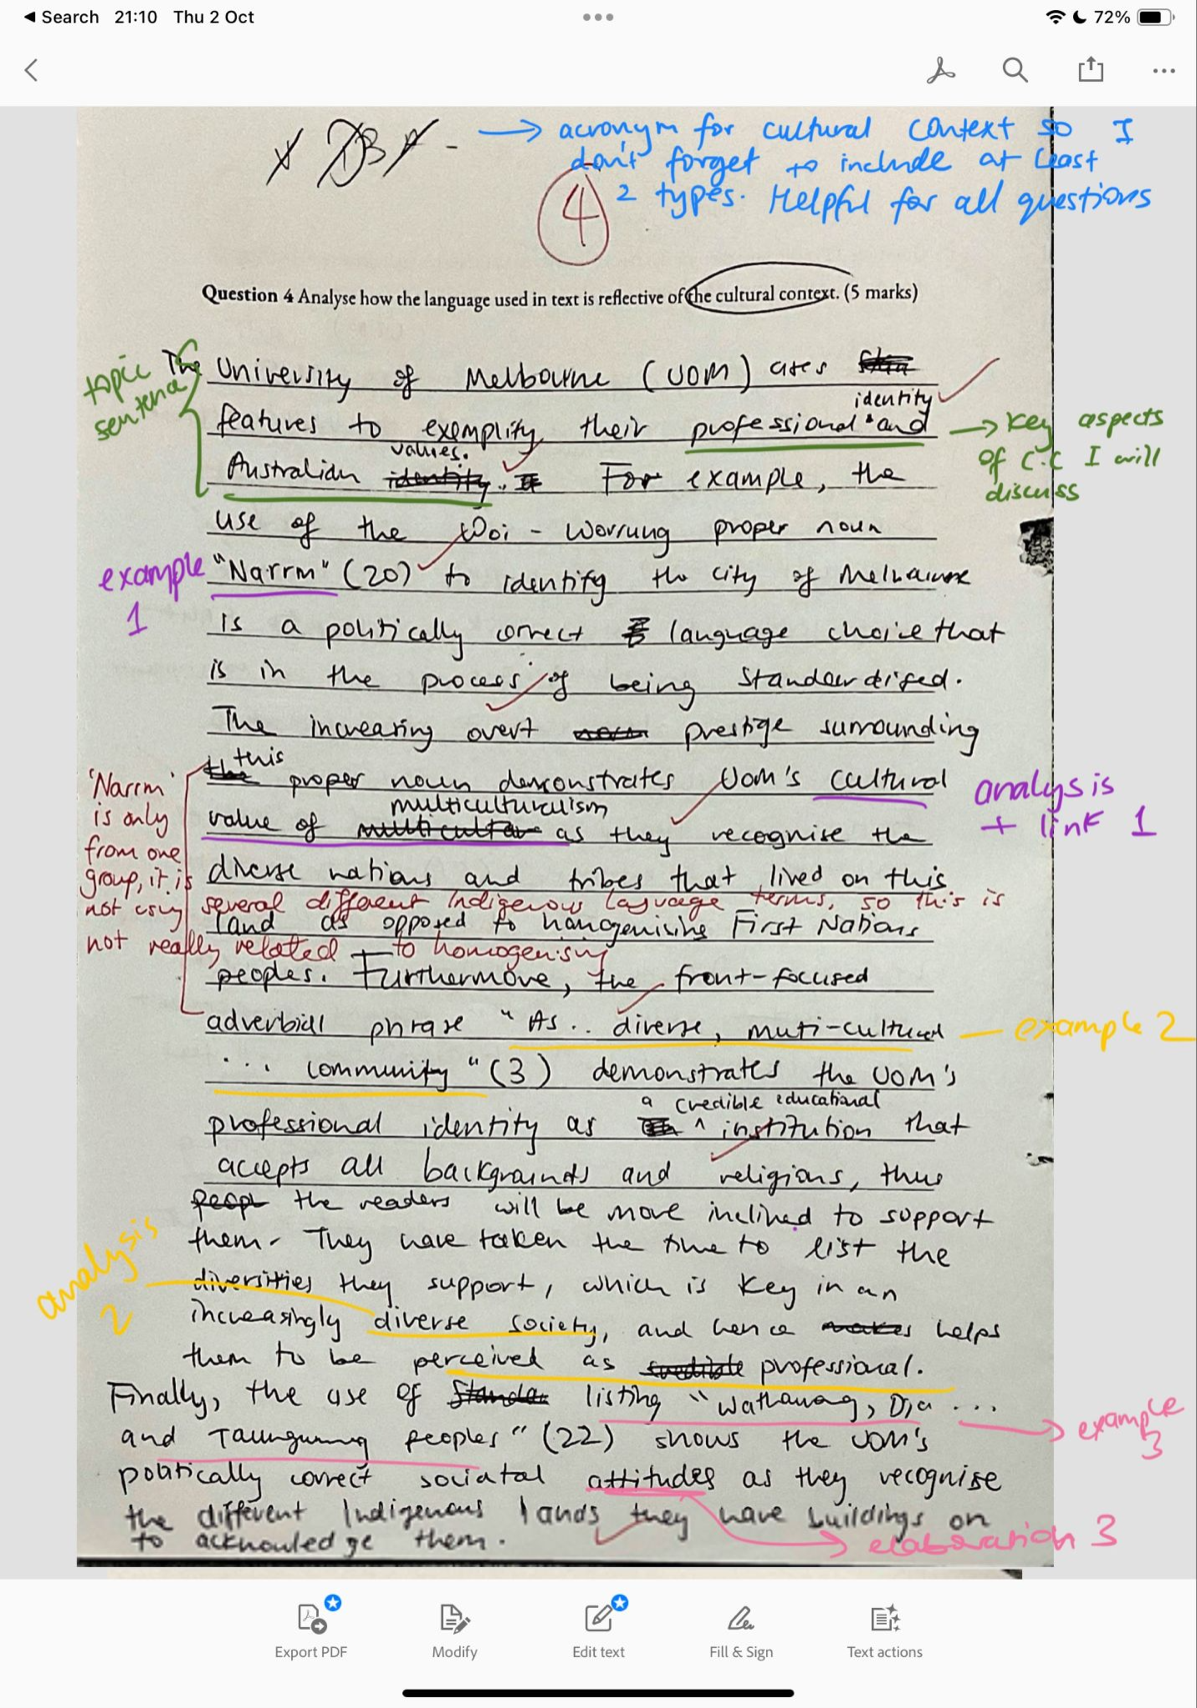 Search 21:10 Thu 2 Oct 72%
→ acronym for cultural context so I
don't forget to include at least
2 types. Helpful for all questions
4
Question 4 Analyse how the language used in text is reflective of the cultural context. (5 marks)
topic sentence
The University of Melbourne (UOM) uses
identity
features to exemplify their professional and
→ key aspects of C.C I will discuss
values.
Australian identity. For example, the
use of the Woi - Worrung proper noun
example 1
"Narrm" (20) to identify the city of Melbourne
is a politically correct language choice that
is in the process of being standardised.
The increasing overt prestige surrounding
this
the proper noun demonstrates UOM's cultural
analysis + link 1
multiculturalism
value of multicultural as they recognise the
diverse nations and tribes that lived on this
'Narrm' is only from one group, it is not using several different Indigenous language terms, so this is not really related to homogenising
land as opposed to homogenising First Nations
peoples. Furthermore, the front-focused
adverbial phrase "As.. diverse, muti-cultural
example 2
... community" (3) demonstrates the UOM's
a credible educational
professional identity as ^ institution that
accepts all backgrounds and religions, thus
peopl the readers will be more inclined to support
them. They have taken the time to list the
analysis 2
diversities they support, which is key in an
increasingly diverse society, and hence makes helps
them to be perceived as credible professional.
Finally, the use of Standa listing "Wathaurong, Dja ...
→ example 3
and Taungurung peoples" (22) shows the UOM's
politically correct sociatal attitudes as they recognise
the different Indigenous lands they have buildings on
to acknowledge them.
→ elaboration 3
Export PDF
Modify
Edit text
Fill & Sign
Text actions